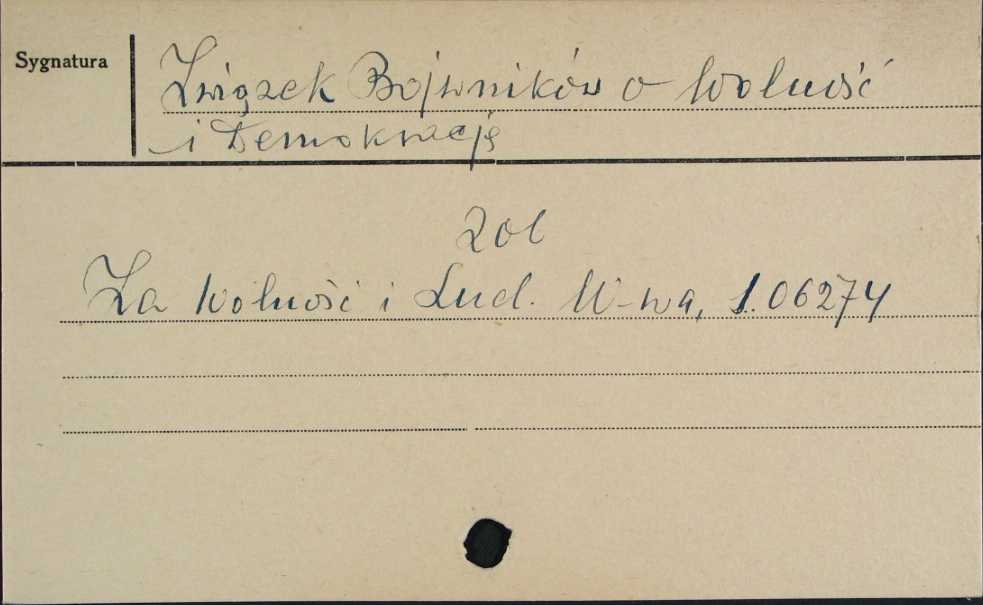 Sygnatura
Związek Bojowników o Wolność
i Demokrację
zob
Za Wolność i Lud. W-wa, 1.06274